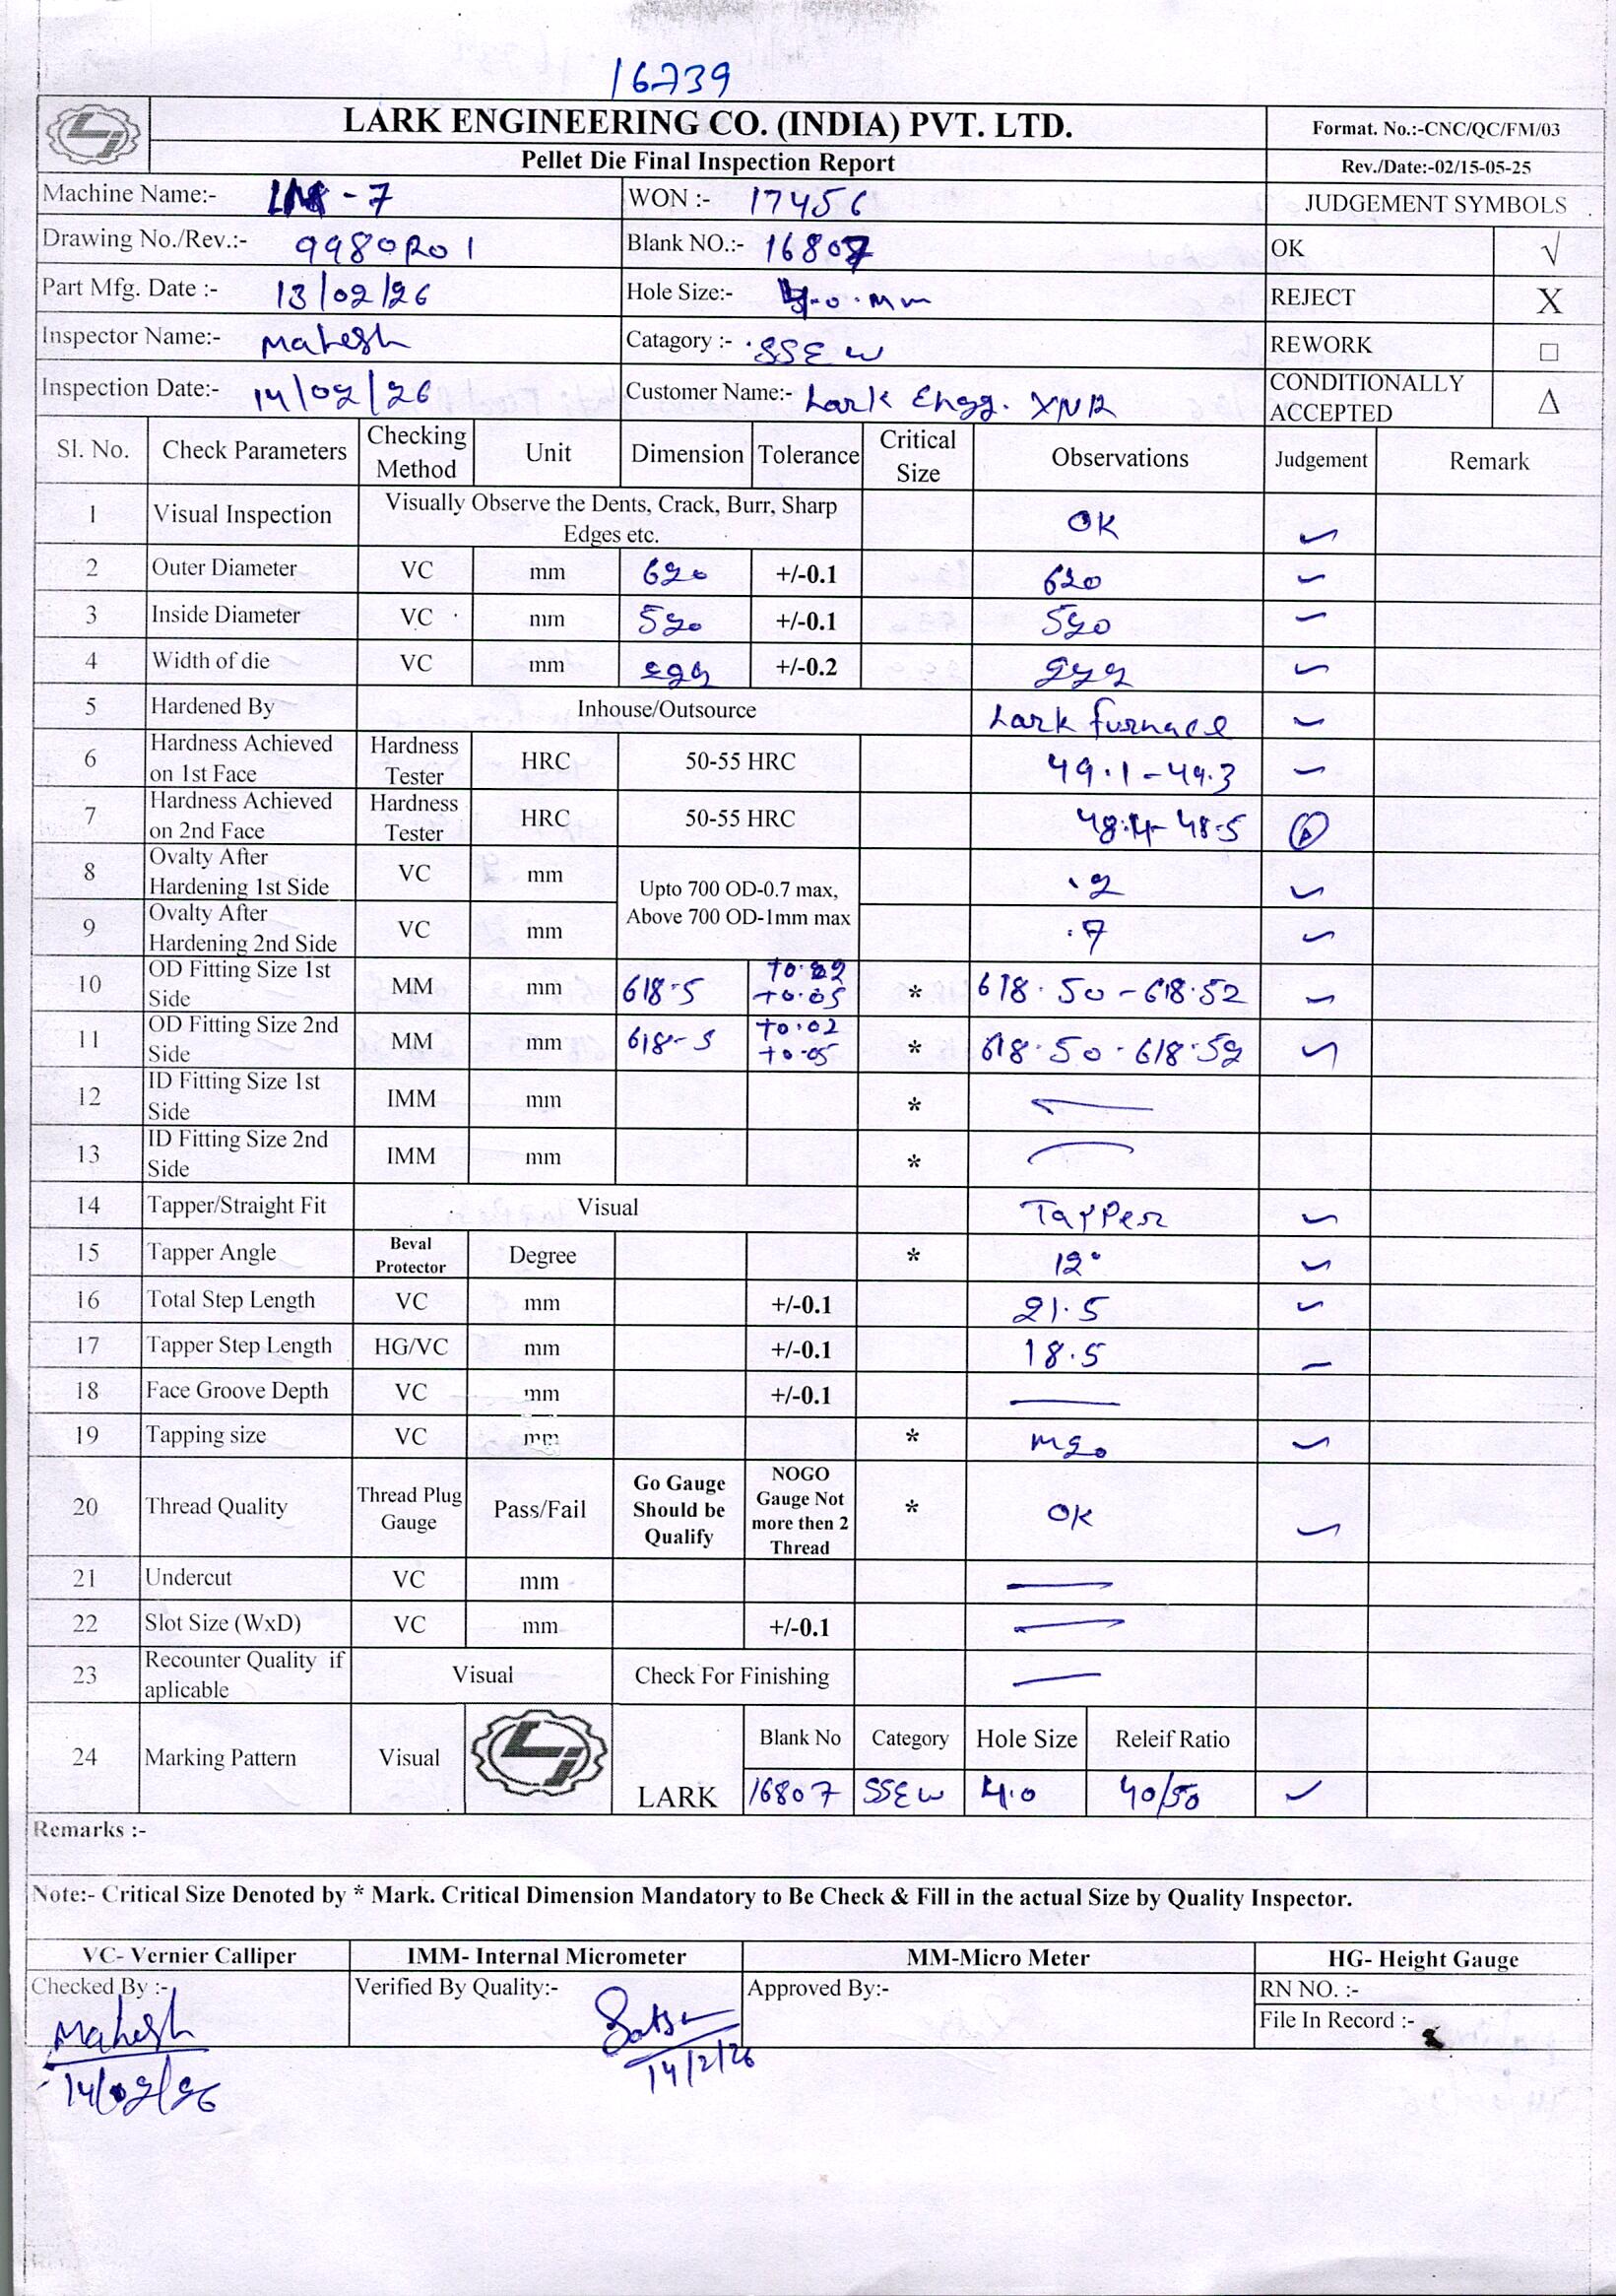 16739
LARK ENGINEERING CO. (INDIA) PVT. LTD.
Format. No.:-CNC/QC/FM/03
Pellet Die Final Inspection Report
Rev./Date:-02/15-05-25
Machine Name:- -7 WON :- 17456 JUDGEMENT SYMBOLS
Drawing No./Rev.:- 9980R01 Blank NO.:- 16807 OK √
Part Mfg. Date :- 13/02/26 Hole Size:- 4.0.mm REJECT X
Inspector Name:- Mahesh Catagory :- SSEW REWORK □
Inspection Date:- 14/02/26 Customer Name:- Lark Engg. YNR CONDITIONALLY ACCEPTED Δ
Sl. No. Check Parameters Checking Method Unit Dimension Tolerance Critical Size Observations Judgement Remark
1 Visual Inspection Visually Observe the Dents, Crack, Burr, Sharp Edges etc. OK ✓
2 Outer Diameter VC mm 620 +/-0.1 620 ✓
3 Inside Diameter VC mm 520 +/-0.1 520 ✓
4 Width of die VC mm +/-0.2 ✓
5 Hardened By Inhouse/Outsource Lark furnace ✓
6 Hardness Achieved on 1st Face Hardness Tester HRC 50-55 HRC 49.1-49.3 ✓
7 Hardness Achieved on 2nd Face Hardness Tester HRC 50-55 HRC 48.4-48.5
8 Ovalty After Hardening 1st Side VC mm Upto 700 OD-0.7 max, Above 700 OD-1mm max .2 ✓
9 Ovalty After Hardening 2nd Side VC mm .7 ✓
10 OD Fitting Size 1st Side MM mm 618.5 +0.02 +0.05 * 618.50-618.52 ✓
11 OD Fitting Size 2nd Side MM mm 618-5 +0.02 +0.05 * 618.50-618.52 ✓
12 ID Fitting Size 1st Side IMM mm * —
13 ID Fitting Size 2nd Side IMM mm * —
14 Tapper/Straight Fit Visual Tapper ✓
15 Tapper Angle Beval Protector Degree * 12° ✓
16 Total Step Length VC mm +/-0.1 21.5 ✓
17 Tapper Step Length HG/VC mm +/-0.1 18.5 ✓
18 Face Groove Depth VC mm +/-0.1 —
19 Tapping size VC mm * M20 ✓
20 Thread Quality Thread Plug Gauge Pass/Fail Go Gauge Should be Qualify NOGO Gauge Not more then 2 Thread * OK ✓
21 Undercut VC mm —
22 Slot Size (WxD) VC mm +/-0.1 —
23 Recounter Quality if aplicable Visual Check For Finishing —
24 Marking Pattern Visual LARK Blank No Category Hole Size Releif Ratio
16807 SSEW 4.0 40/50 ✓
Remarks :-
Note:- Critical Size Denoted by * Mark. Critical Dimension Mandatory to Be Check & Fill in the actual Size by Quality Inspector.
VC- Vernier Calliper IMM- Internal Micrometer MM-Micro Meter HG- Height Gauge
Checked By :- Verified By Quality:- Approved By:- RN NO. :-
File In Record :-
Mahesh
14/02/26
14/2/26